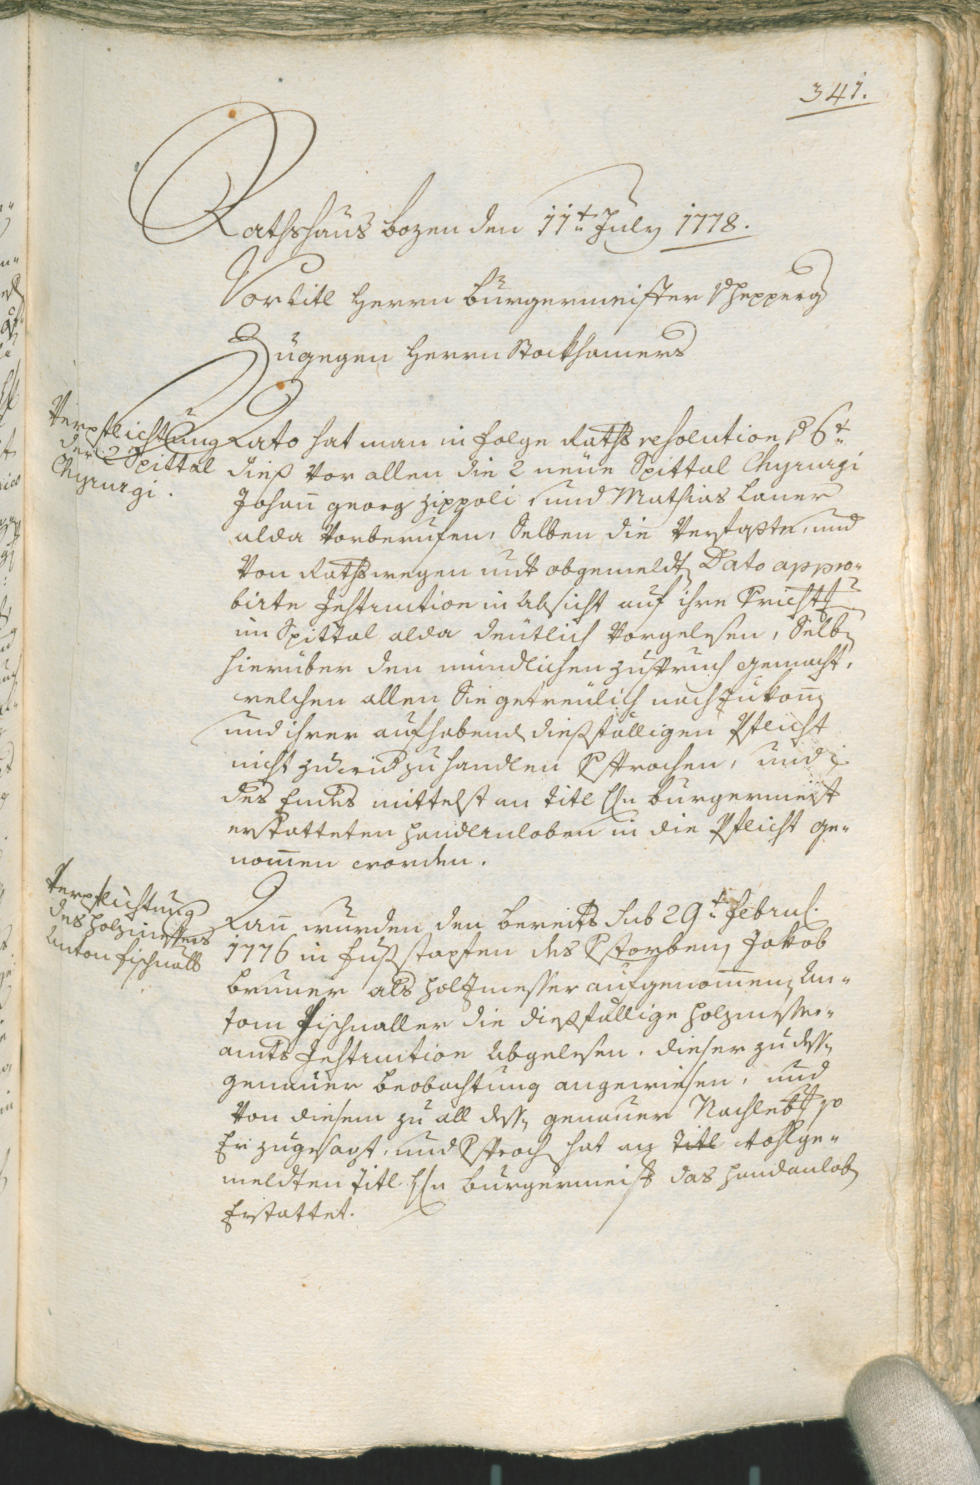 341.
Rathshaus bozen den 11t July 1778.
Vor titl Herrn bürgermeister
Zugegen Herrn Stockhamers
Verpflichtung
der 2 Spittal
Chyrurgi.
Dato hat man in folge Raths resolution 6t
dieß vor allen die 2 neüe Spittal Chyrurgi
Johan̄ georg Zippoli, und Mathias Laner
alda vorberufen, Selben die verfaßte, und
von Rathswegen mit obgemeldt Dato appro-
birte Instruction in absicht auf ihre
im Spittal alda deütlich vorgelesen, Selb
hierüber den mündlichen zuspruch gemacht,
welchen allen Sie getreülich nachzukom̄
und ihrer aufhabend dießfälligen Pflicht
nicht zuwid zu handlen Psprochen, und
des Endes mittelst an titl Hn bürgermeist
erstatteten handanloben in die Pflicht ge-
nom̄en worden.
Verpflichtung
des holzmessers
Anton fischnall
Dan̄ wurden den bereits sub 29t febru
1776 in fußstapfen des Pstorben Jakob
bruner als holzmesser aufgenom̄en An-
tom Fischnaller die dießfällige holzmesser-
amts Instruction abgelesen, dieser zu dess
genauer beobachtung angewiesen, und
von diesem zu all dess genauer Nachleb
Er zugesagt, und Psproch hat an titl wohlge-
meldten titl Hn bürgermeist das handanlob
Erstattet.